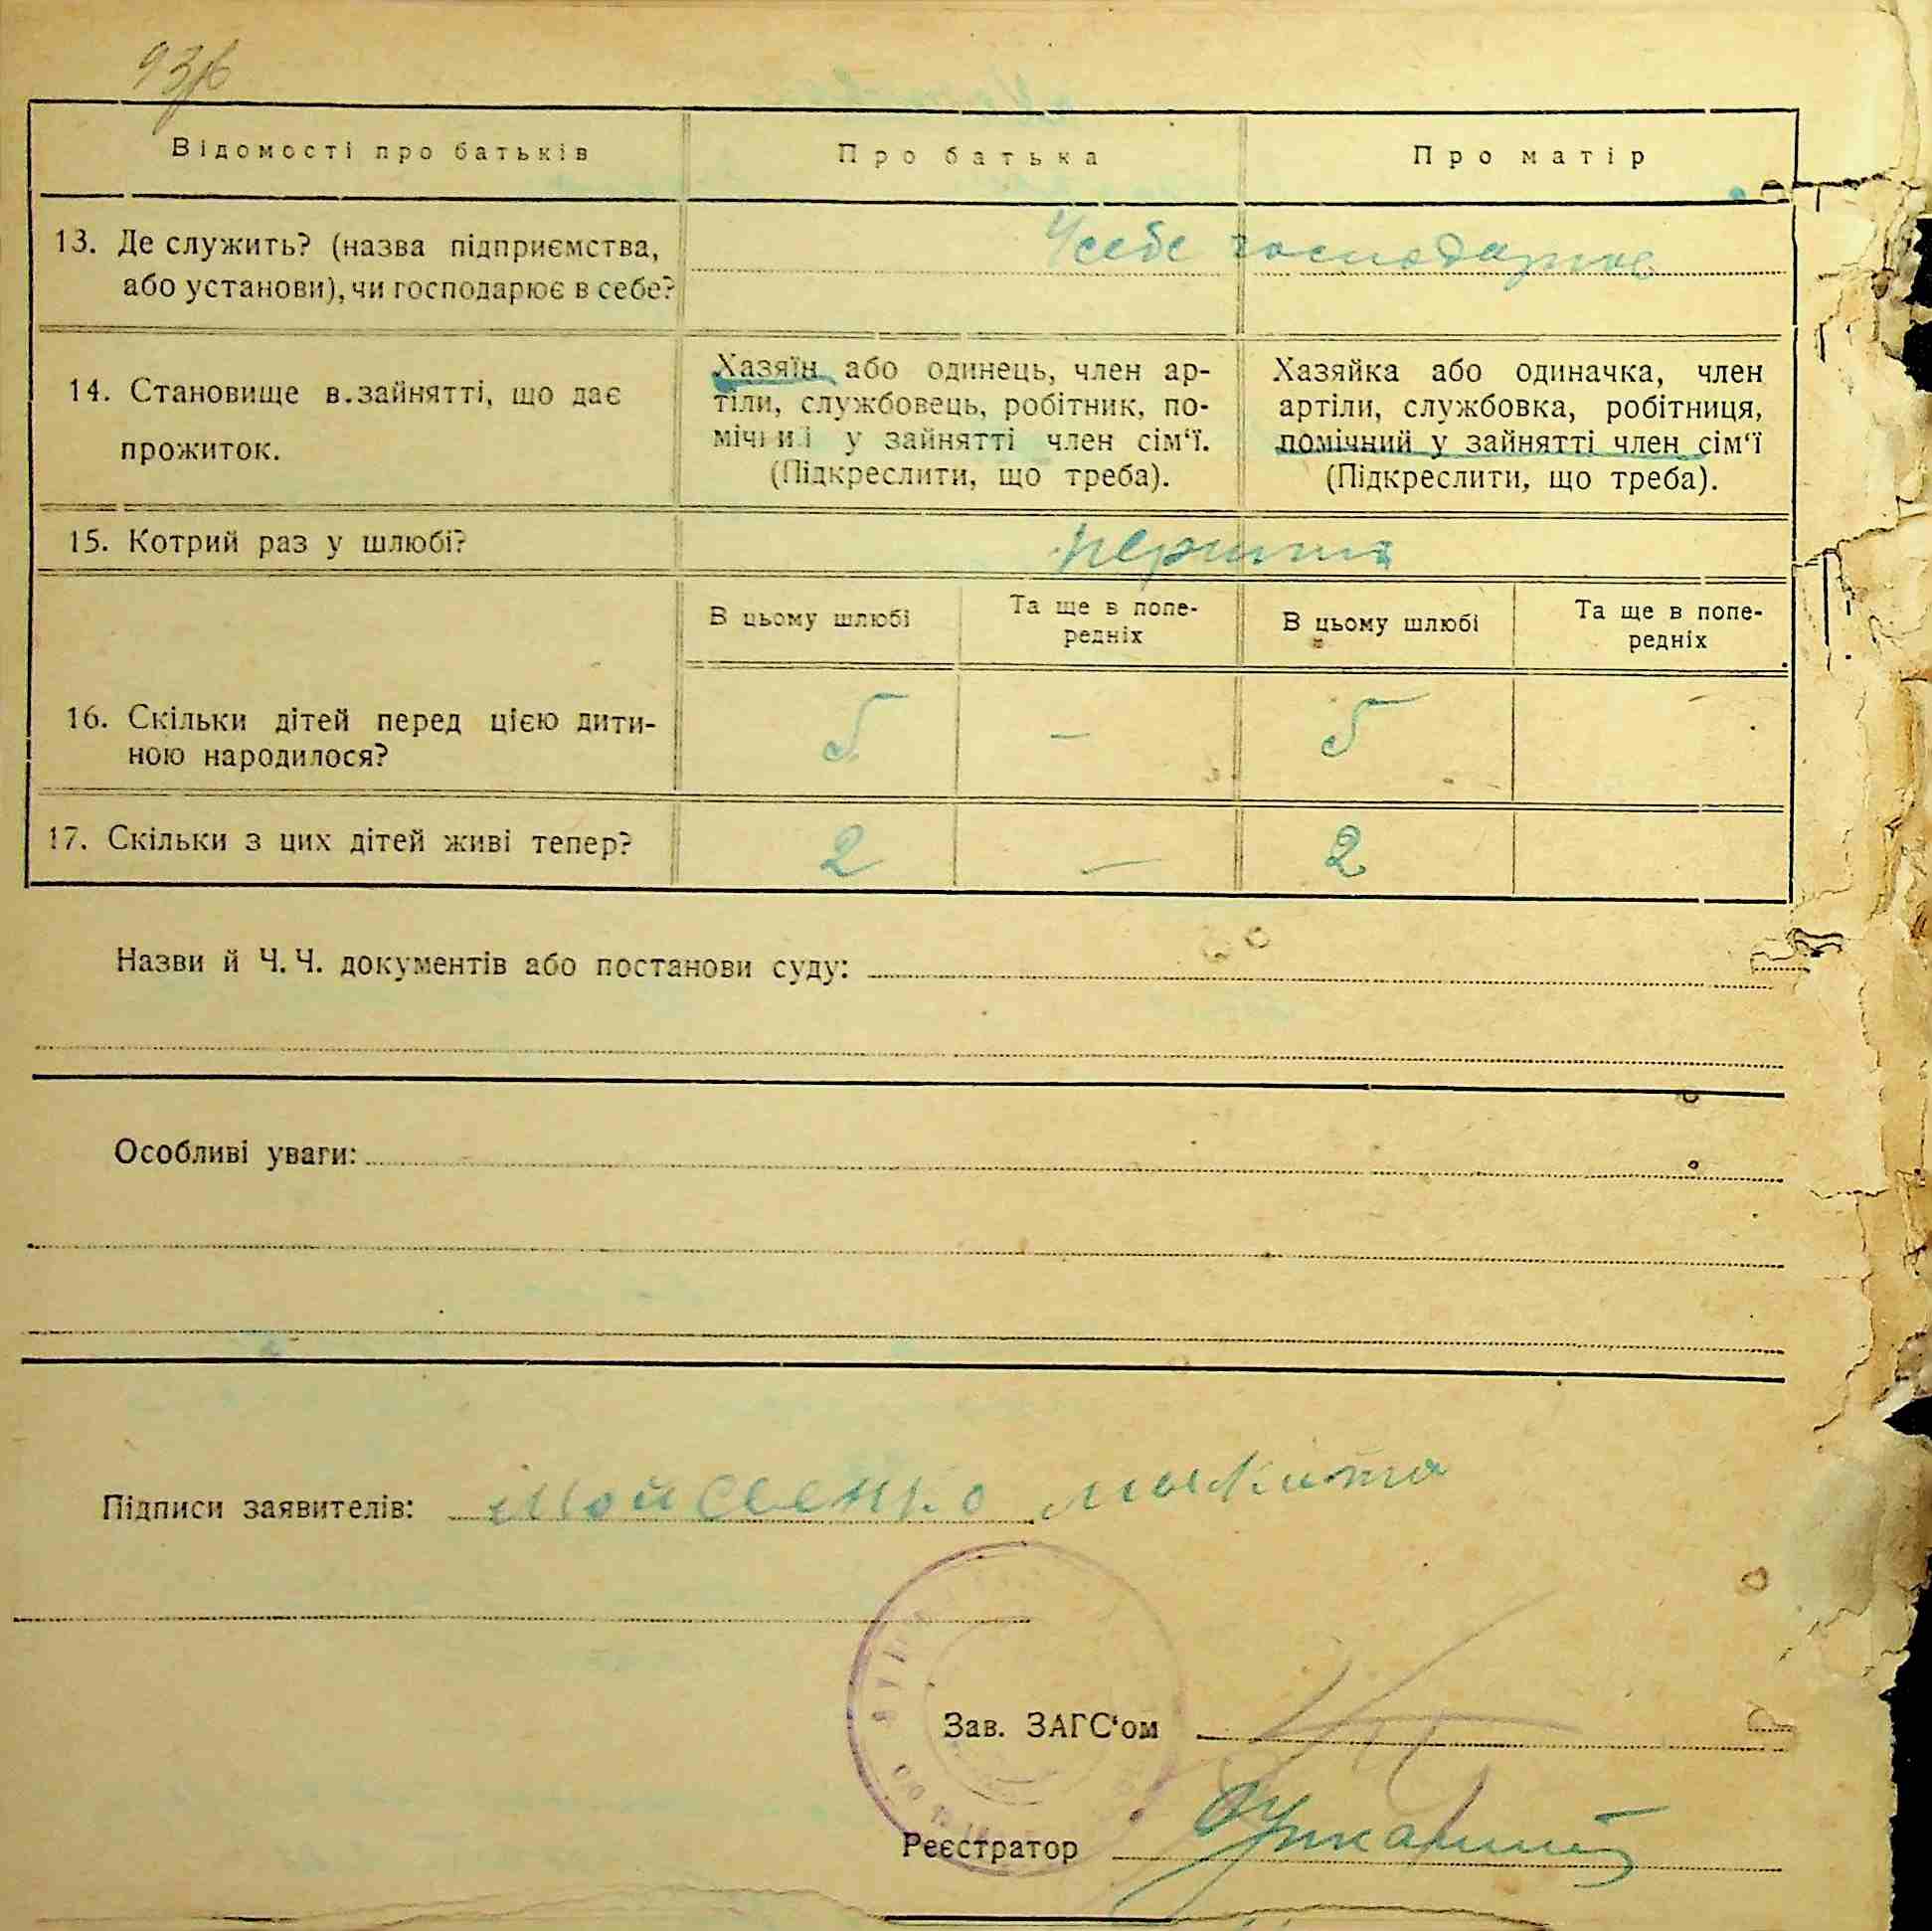 Відомості про батьків
Про батька
Про матір
13. Де служить? (назва підприємства,
або установи), чи господарює в себе?
У себе господарює
14. Становище в.зайнятті, що дає
прожиток.
Хазяїн або одинець, член ар-
тіли, службовець, робітник, по-
мічний у зайнятті член сім‘ї.
(Підкреслити, що треба).
Хазяйка або одиначка, член
артіли, службовка, робітниця,
помічний у зайнятті член сім‘ї
(Підкреслити, що треба).
15. Котрий раз у шлюбі?
В цьому шлюбі
Та ще в попе-
редніх
В цьому шлюбі
Та ще в попе-
редніх
16. Скільки дітей перед цією дити-
ною народилося?
5
–
5
17. Скільки з цих дітей живі тепер?
2
–
2
Назви й Ч. Ч. документів або постанови суду:
Особливі уваги:
Підписи заявителів: Мойсеенко Микита
Зав. ЗАГС‘ом
Реєстратор